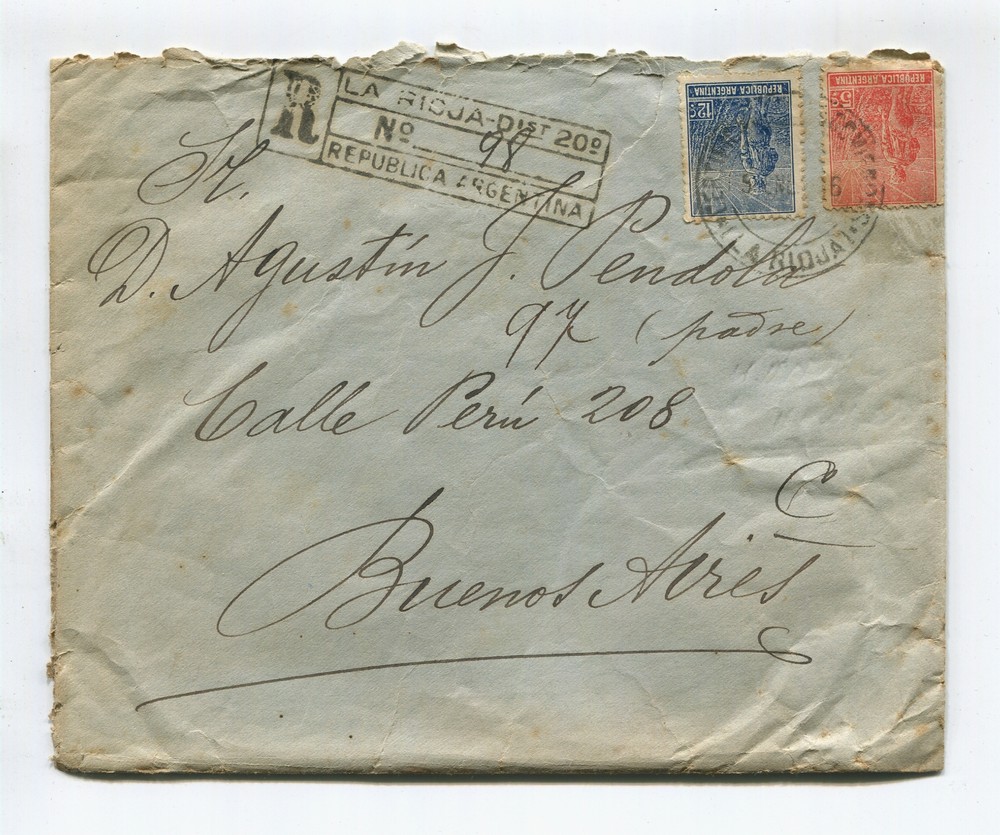 R
LA RIOJA-DIST 20º
Nº 98
REPUBLICA ARGENTINA
REPUBLICA ARGENTINA
12 C.
REPUBLICA ARGENTINA
5 C.
5 EN 6
(LA RIOJA)
Sr.
D. Agustín J. Pendola
97 (padre)
Calle Perú 208
Buenos Aires